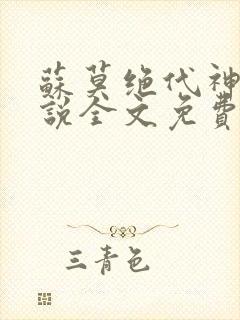 蘇莫绝代神
說全文免費
三青色